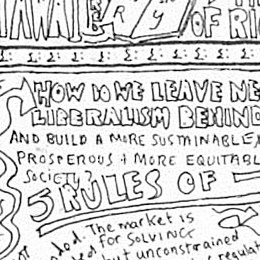 OF RI
HOW DO WE LEAVE NE
LIBERALISM BEHIND
AND BUILD A MORE SUSTAINABLE,
PROSPEROUS + MORE EQUITABL
SOCIETY?
5 RULES OF
ded. The market is
for SOLVING
but unconstrained
regulat